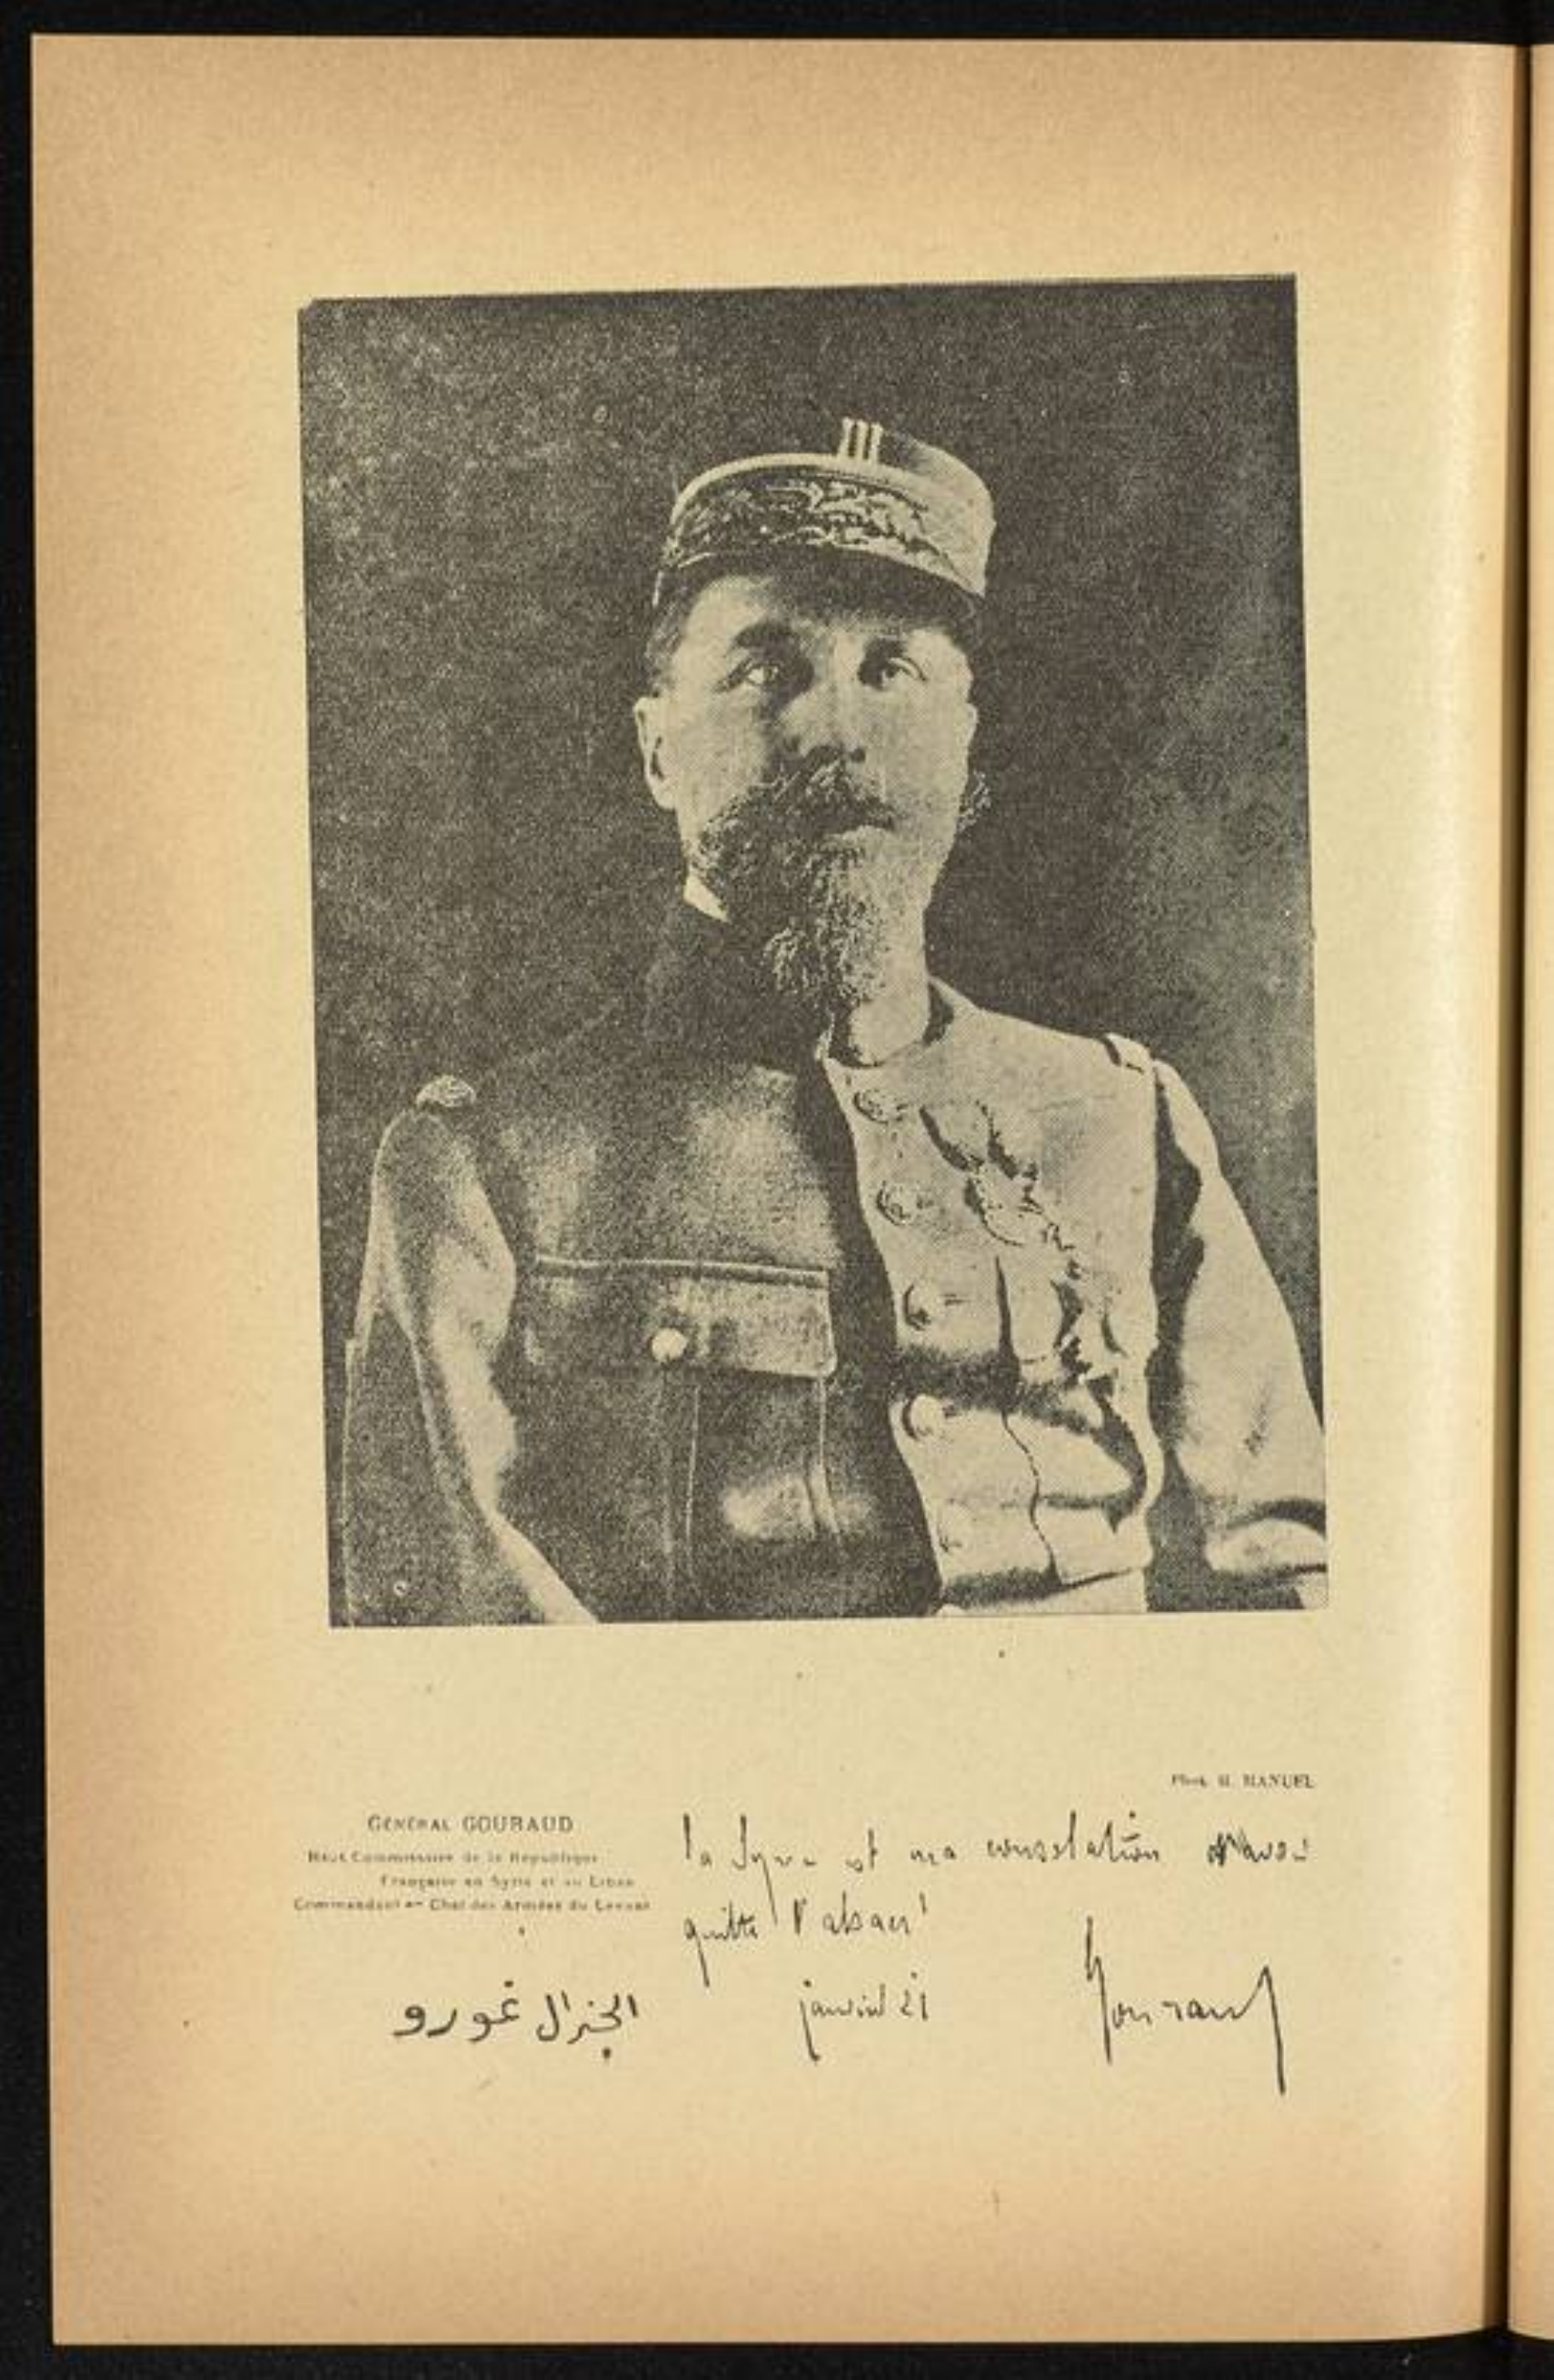 Phot. H. MANUEL
GÉNÉRAL GOURAUD
Haut Commissaire de la République
Française en Syrie et au Liban
Commandant en Chef des Armées du Levant
الجنرال غورو
la Syrie est ma consolation d'avoir
quitté l'alsace !
janvier 21
Gouraud